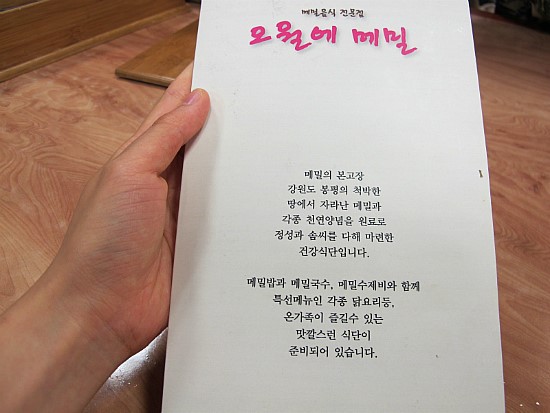 메밀음식 전문점
오월에 메밀
메밀의 본고장
강원도 봉평의 척박한
땅에서 자라난 메밀과
각종 천연양념을 원료로
정성과 솜씨를 다해 마련한
건강식단입니다.
메밀밥과 메밀국수, 메밀수제비와 함께
특선메뉴인 각종 닭요리등,
온가족이 즐길수 있는
맛깔스런 식단이
준비되어 있습니다.